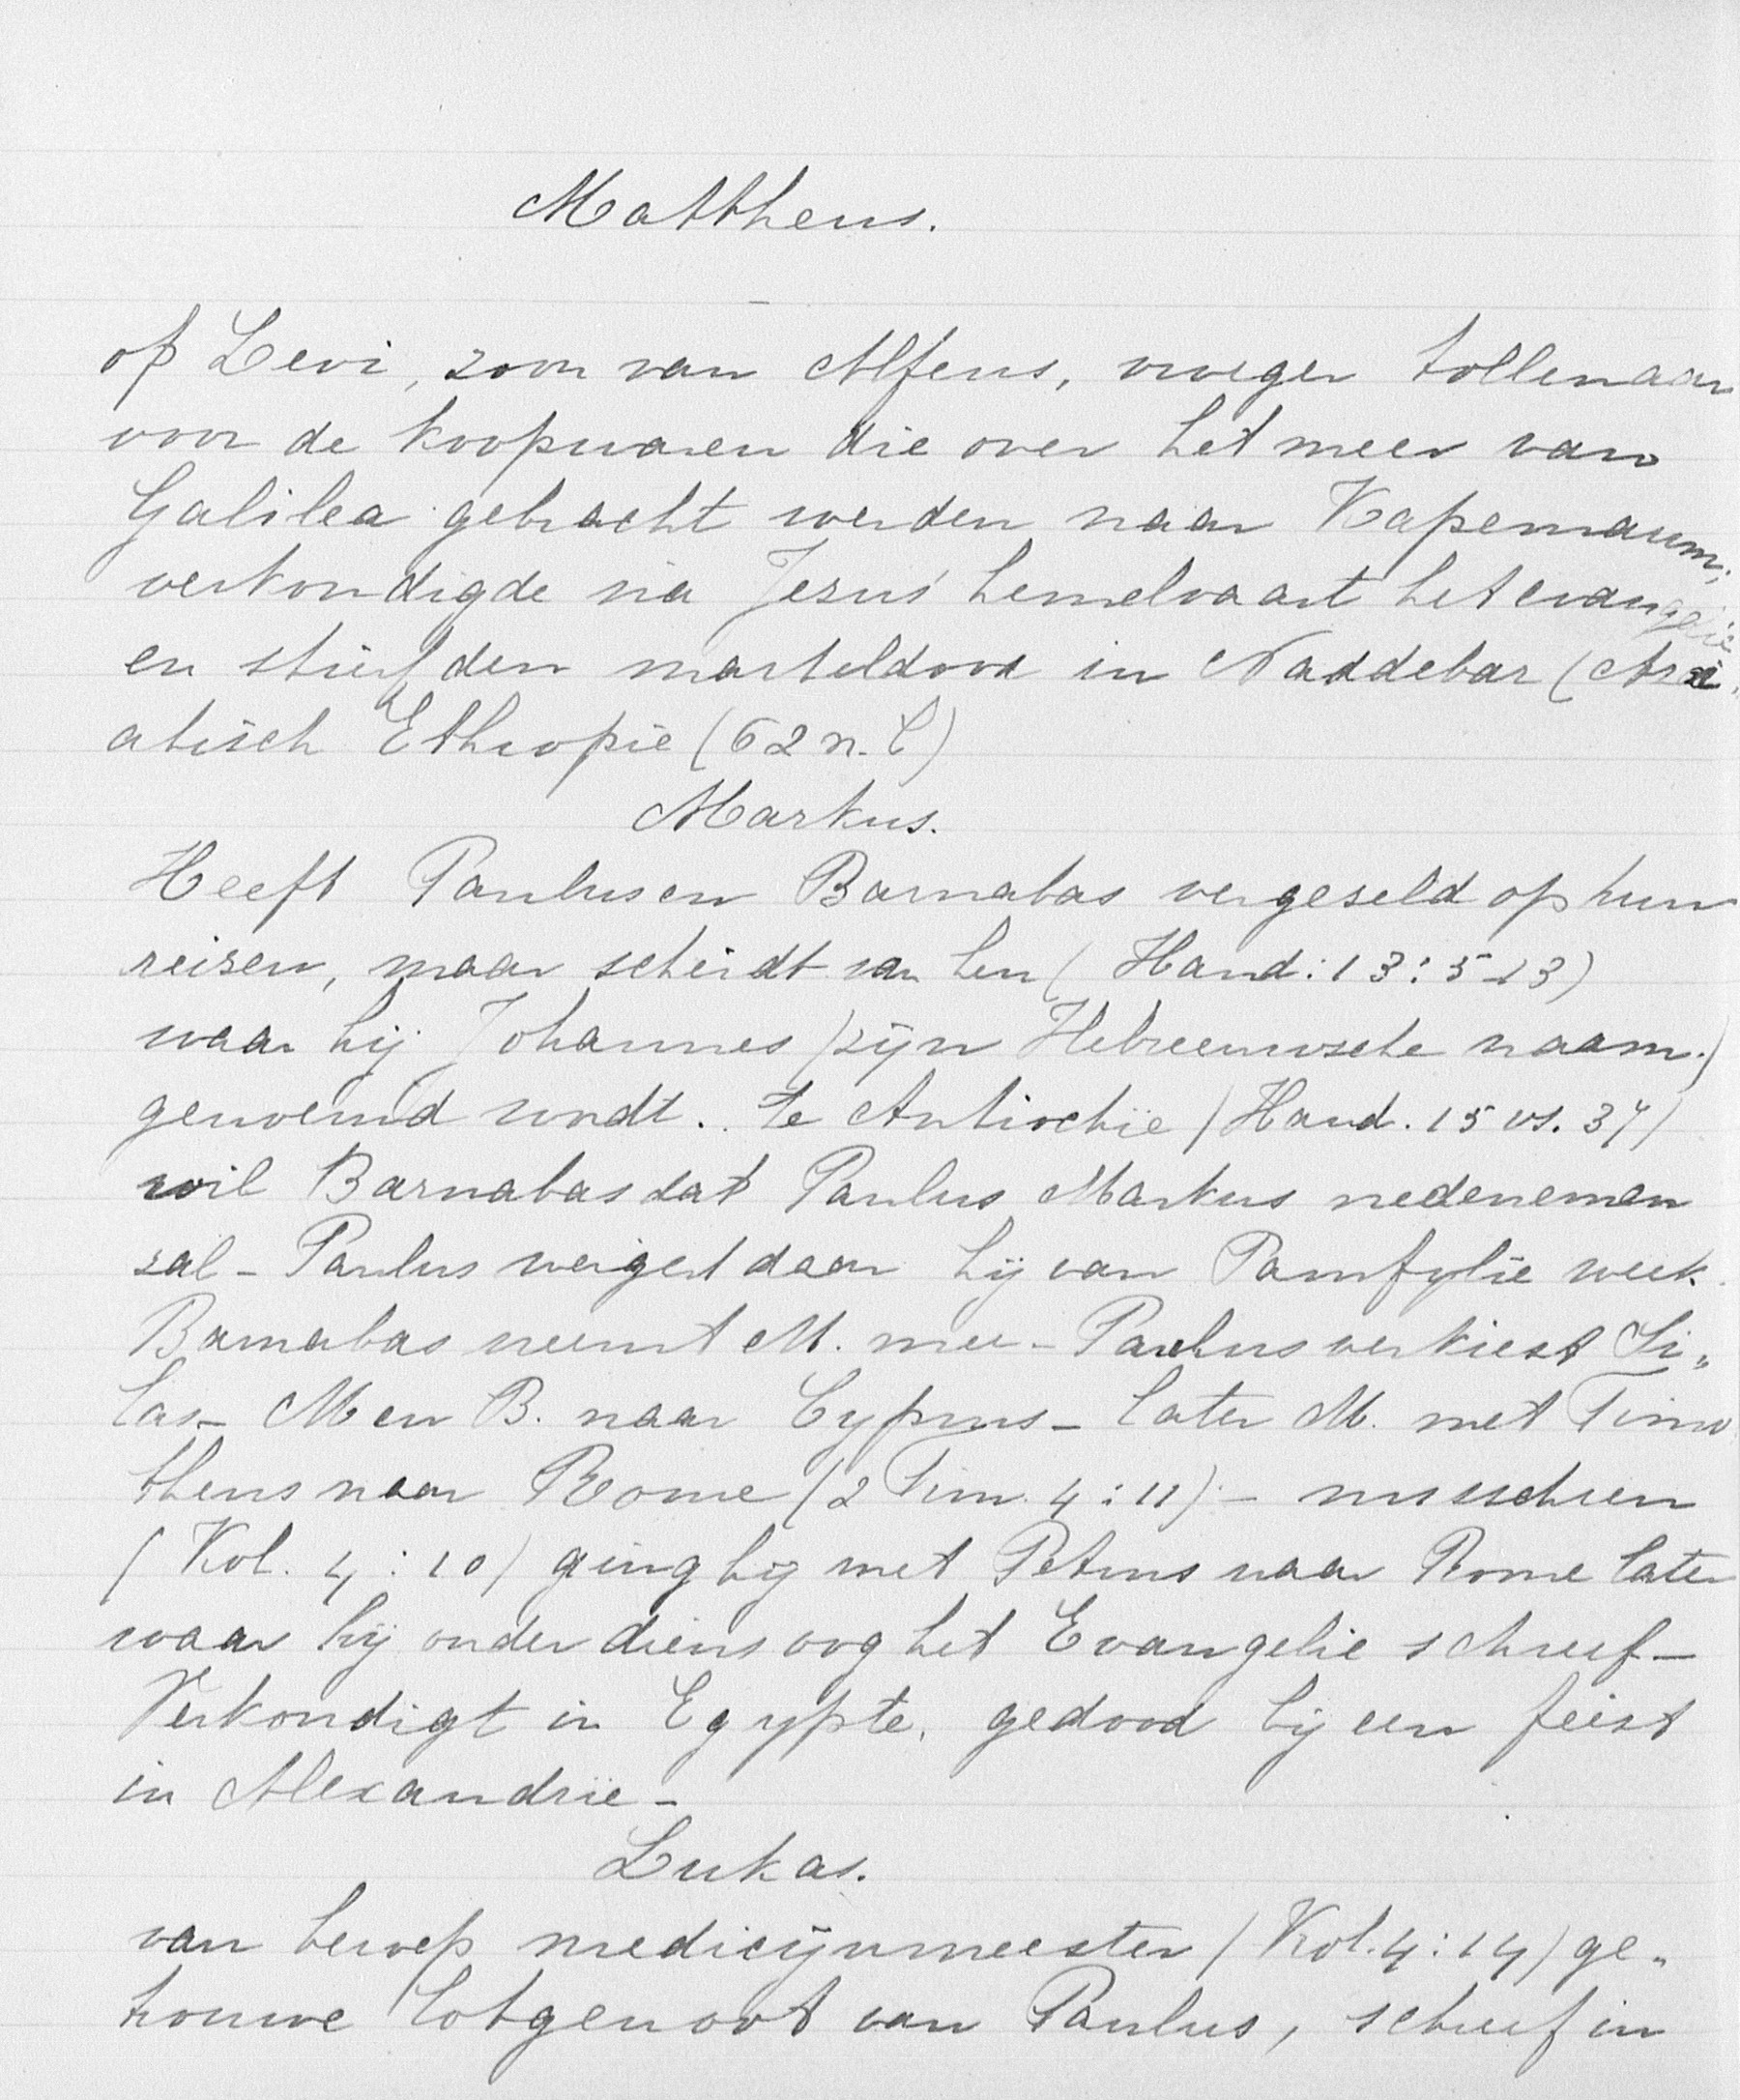 Mattheus.
of Levi, zoon van Alfeus, vroeger tollenaar
voor de koopwaren die over het meer van
Galilea gebracht werden naar Kapernaum;
verkondigde na Jezus' hemelvaart het evangelie
en stierf den marteldood in Naddebar (Asi„
atisch Ethiopië (62 n. C)
Markus.
Heeft Paulus en Barnabas vergeseld op hun
reizen, maar scheidt van hen (Hand: 13:5-13)
waar hij Johannes (zijn Hebreeuwsche naam.)
genoemd wordt.. te Antiochië (Hand. 15 vs. 37)
wil Barnabas dat Paulus Markus medenemen
zal - Paulus weigert daar hij van Pamfylië week.
Barnabas neemt M. mee - Paulus verkiest Si„
las - M en B. naar Cyprus - later M. met Timo
theus naar Rome (2 Tim. 4:11) - misschien
(Kol. 4:10) ging hij met Petrus naar Rome later
waar hij onder diens oog het Evangelie schreef -
Verkondigt in Egypte, gedood bij een feest
in Alexandrië -
Lukas.
van beroep medicijnmeester (Kol. 4:14) ge„
trouwe lotgenoot van Paulus, schreef in